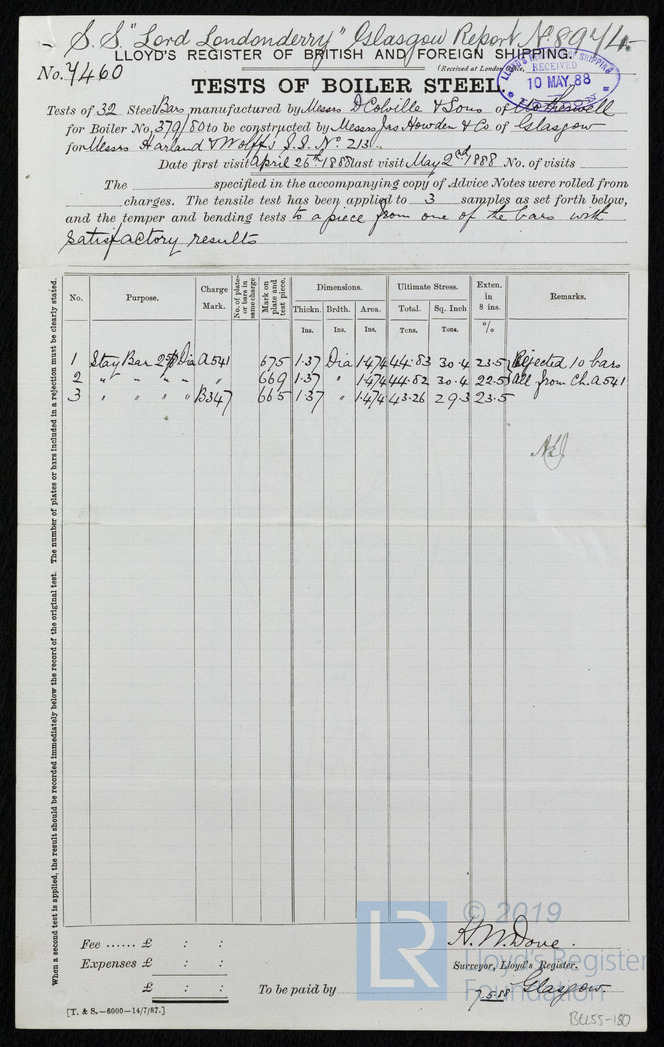 S.S. "Lord Londonderry" Glasgow Report No. 8974.
LLOYD'S REGISTER OF BRITISH AND FOREIGN SHIPPING.
No. 7460
(Received at London Office,
LLOYD'S REGISTER OF SHIPPING
RECEIVED
10 MAY 88
TESTS OF BOILER STEEL.
Tests of 32 Steel Bars manufactured by Messrs D Colville & Sons of Motherwell
for Boiler No. 379/80 to be constructed by Messrs Jas Howden & Co of Glasgow
for Messrs Harland & Wolff's S.S. No. 213.
Date first visit April 26th 1888 last visit May 2nd 1888 No. of visits
The specified in the accompanying copy of Advice Notes were rolled from
charges. The tensile test has been applied to 3 samples as set forth below,
and the temper and bending tests to a piece from one of the bars with
satisfactory results
When a second test is applied, the result should be recorded immediately below the record of the original test. The number of plates or bars included in a rejection must be clearly stated.
No. Purpose. Charge Mark. No. of plates or bars in same charge Mark on plate and test piece. Dimensions. Ultimate Stress. Exten. in 8 ins. Remarks.
Thickn. Brdth. Area. Total. Sq. Inch
Ins. Ins. Ins. Tons. Tons. %
1 Stay Bar Dia A541 675 1.37 Dia 1.474 44.83 30.4 23.5 Rejected 10 bars
2 " " " " " 669 1.37 " 1.474 44.82 30.4 22.5 all from Ch. A541
3 " " " " B347 665 1.37 " 1.474 43.26 29.3 23.5
Fee ...... £ : :
Expenses £ : :
£ : :
To be paid by
H. W. Dove.
Surveyor, Lloyd's Register.
7.5.88 Glasgow.
[T. & S.—6000—14/7/87.]
LR
© 2019
Lloyd's Register
Foundation
BEL55-180